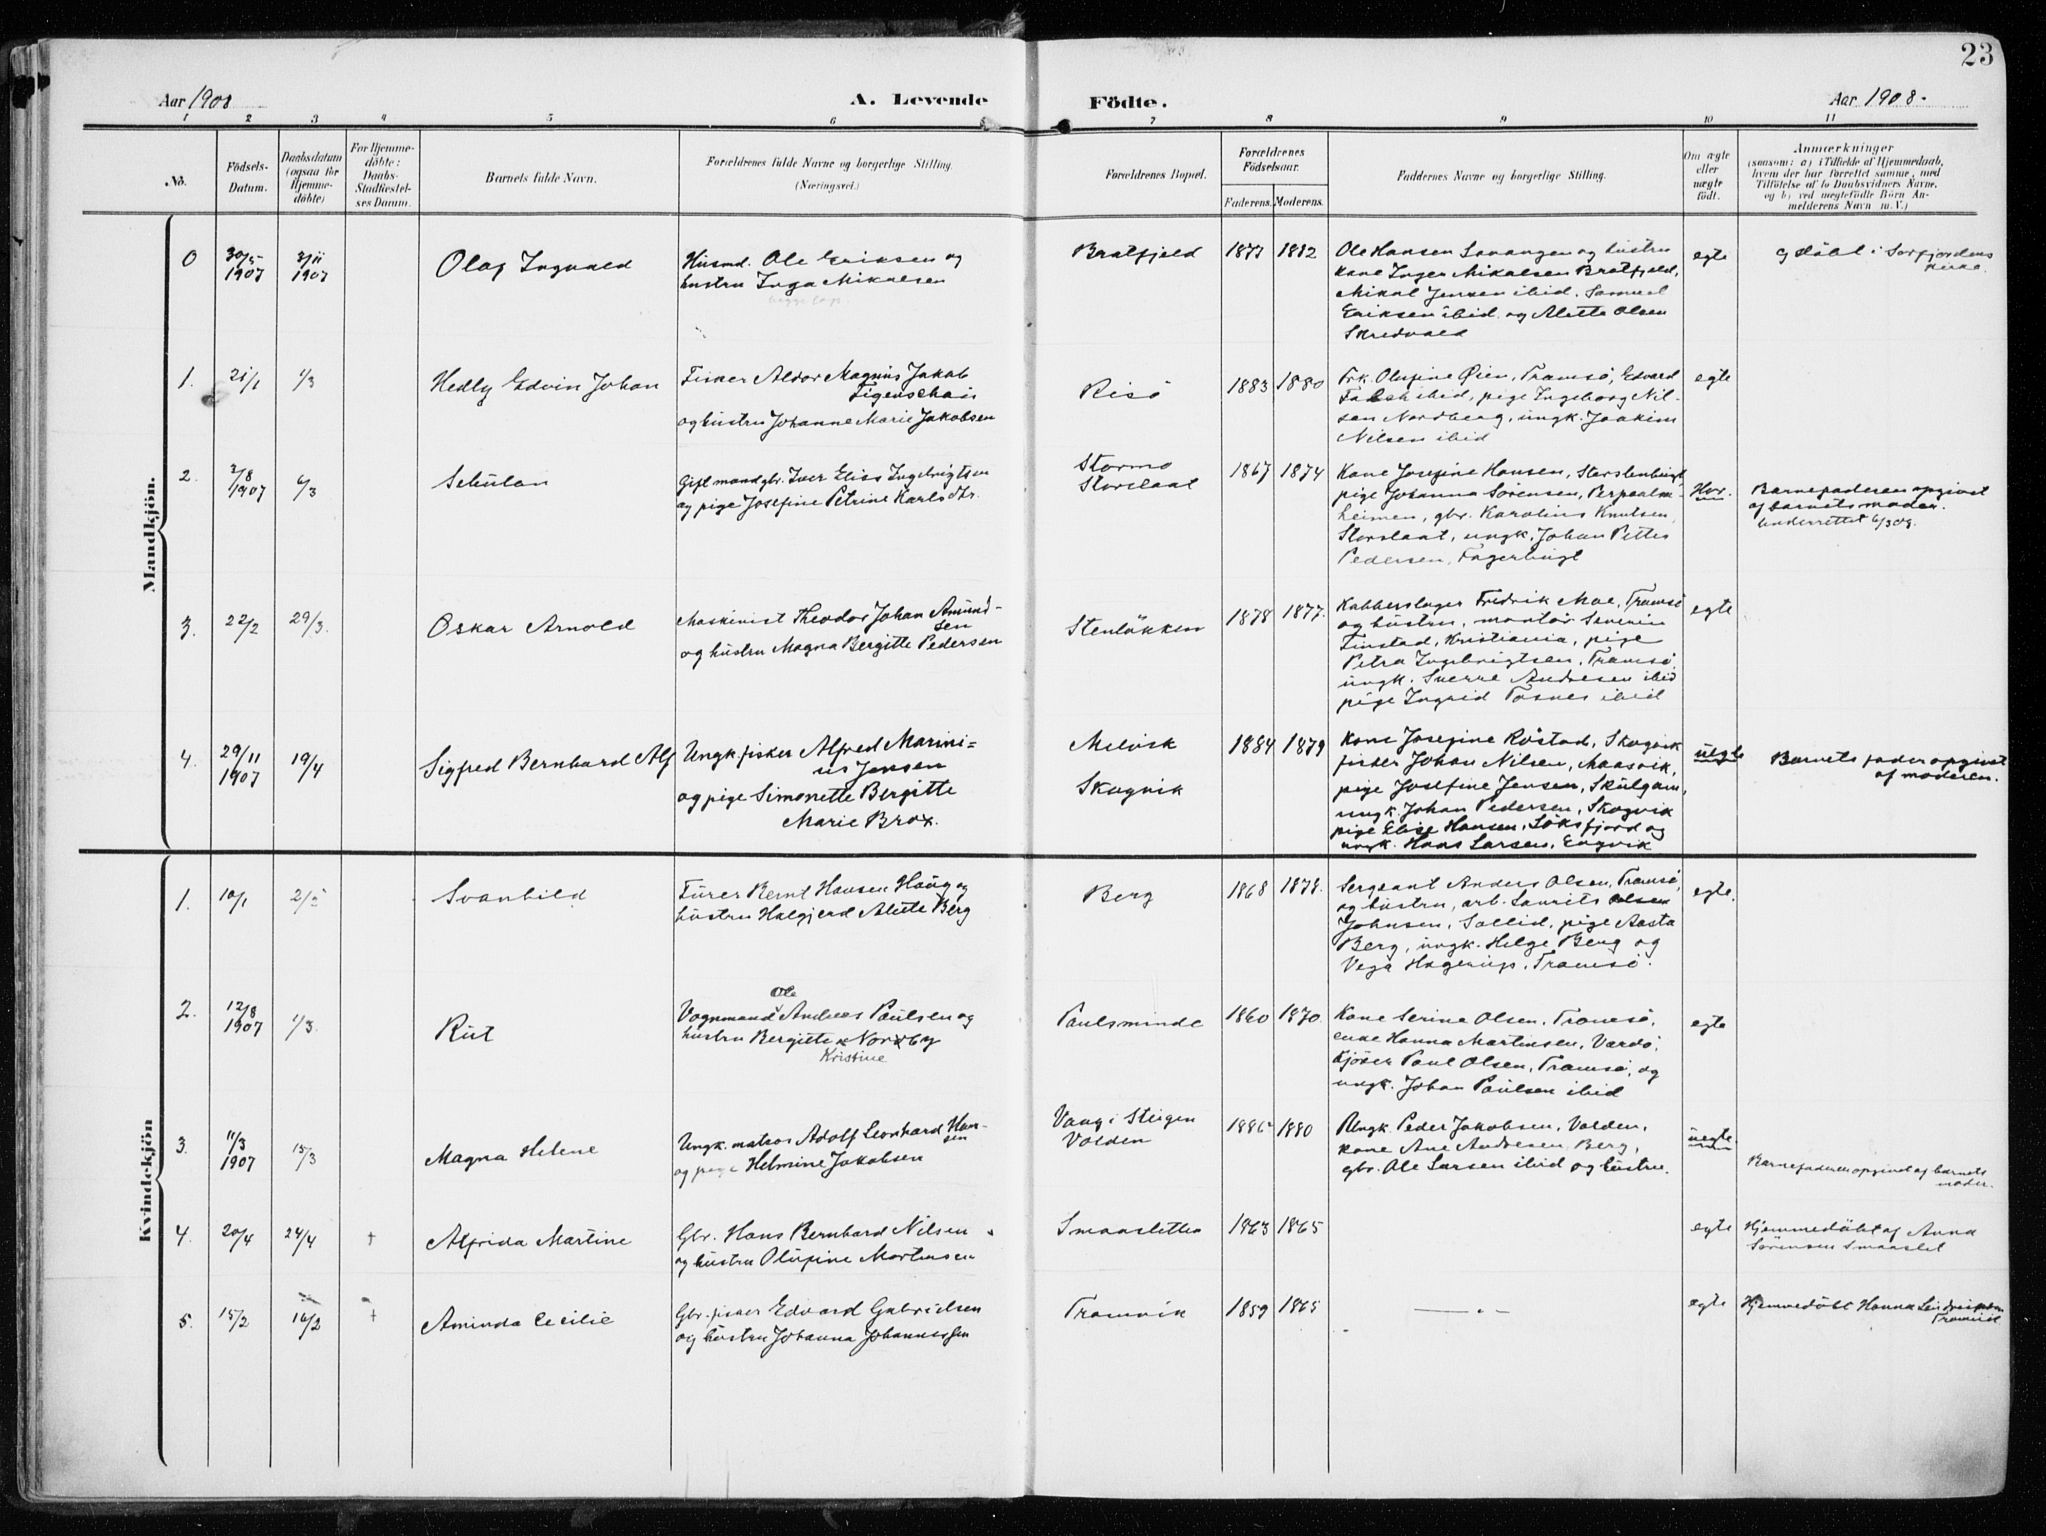 23
Aar 1908
A. Levende Födte.
Aar 1908.
1 2 3 4 5 6 7 8 9 10 11
No.
Födsels-
Datum.
Daabsdatum
(ogsaa for
Hjemme-
döbte)
For Hjemme-
döbte:
Daabs-
Stadfæstel-
ses Datum.
Barnets fulde Navn.
Forældrenes fulde Navne og borgerlige Stilling.
(Næringsvei.)
Forældrenes Bopæl.
Forældrenes
Födselsaar.
Faderens. Moderens.
Faddernes Navne og borgerlige Stilling.
Om ægte
eller
uægte
födt.
Anmærkninger
(saasom: a) i Tilfælde af Hjemmedaab,
hvem der har forrettet samme, med
Tilföielse af to Daabsvidners Navne.
og b) ved uægtefödte Börn An-
melderens Navn m. V.)
Mandkjön.
0
30/5
1907
3/11
1907
Olaf Ingvald
Husmd. Ole Eriksen og
hustru Inga Mikalsen
Bratfjeld
1877 1882
Ole Hansen Lavangen og hustru
kone Inger Mikalsen Bratfjeld,
Mikal Jensen ibid. Samuel
Eriksen ibid. og Alette Olsen
Skredvald
egte
döbt i Sørfjordens
kirke.
1.
21/1
1/3
Hedly Edvin Johan
Fisker Aldor Magnus Jakob
Figenschau
og hustru Johanne Marie Jakobsen
Risö
1883 1880
Frk. Olufine Øien, Tromsø, Edvard
Falsk ibid, pige Ingeborg Nil-
sen Nordberg, ungk. Joakim
Nilsen ibid
egte
2.
2/8
1907
6/3
Gift mand gbr. Iver Elias Ingebrigtsen
og pige Josefine Petrine Karlsdtr.
Stormo
Storslaat
1867 1874
Kone Josefine Hansen, Storstenbugt,
pige Johanna Sørensen,
heimen, gbr. Karolius Knutsen,
Storslaat, ungk. Johan Petter
Pedersen, Fagerbugt
Hor.
Barnefaderen opgivet
af barnets moder.
Underrettet 6/3 08.
3.
22/2
29/3.
Oskar Arnold
Maskinist Theodor Johan Amund-
sen
og hustru Magna Bergitte Pedersen
Stenløkken
1878 1877.
Kobberslager Fredrik Moe, Tromsø
og hustru, montør Severin
Finstad, Kristiania, pige
Petra Ingebrigtsen, Tromsø,
ungk. Sverre Andresen ibid
pige Ingrid Fosnes ibid
egte
4.
29/11
1907
19/4
Sigfred Bernhard Alf
Ungk. fisker Alfred Marini=
us Jensen
og pige Simonette Bergitte
Marie Brox.
Melvik
Skogvik
1884 1879
Kone Josefine Røstad, Skogvik
fisker Johan Nilsen, Maasvik,
pige Josefine Jensen, Skulgam,
ungk. Johan Pedersen, Skogvik
pige Elise Hansen, Løksfjord og
ungk. Hans Larsen, Engvik
uegte
Barnets fader opgivet
af moderen.
Kvindekjön
1.
10/1
2/2
Svanhild
Furer Bernt Hansen Haug og
hustru Halgjerd Alete Berg
Berg
1868 1878.
Sergeant Anders Olsen, Tromsø,
og hustru, arb. Laurits Olsen
Johnsen, Sollid, pige Aasta
Berg, ungk. Helge Berg og
Vega Hagerup, Tromsø.
egte.
2.
12/8
1907
1/3.
Rut
Ole
Vognmand Andreas Paulsen og
hustru Bergitte Norby
Kristine
Paulsminde
1860 1870.
Kone Serine Olsen, Tromsø,
enke Hanna Martinsen, Vardø,
Kjøber Paul Olsen, Tromsø, og
ungk. Johan Paulsen ibid
egte
3.
11/3
1907
15/3
Magna Helene
Ungk. matros Adolf Leonhard Han-
sen
og pige Helmine Jakobsen
Vaag i Steigen
Volden
1886 1880
Ungk. Peder Jakobsen, Volden,
kone Ane Andresen, Berg,
gbr. Ole Larsen ibid og hustru.
uegte.
Barnefaderen opgivet af barnets
moder.
4.
20/4
24/4
+
Alfrida Martine
Gbr. Hans Bernhard Nilsen
og hustru Olufine Mortensen
Smaasletta
1863 1865
egte
Hjemmedøbt af Anna
Sørensen Smaaslet
5.
15/2
16/2
+
Aminda Cecilie
Gbr. fisker Edvard Gabrielsen
og hustru Johanna Johannessen
Tromvik
1859 1865
— „ —
egte
Hjemmedøbt Hanna
Tromvik